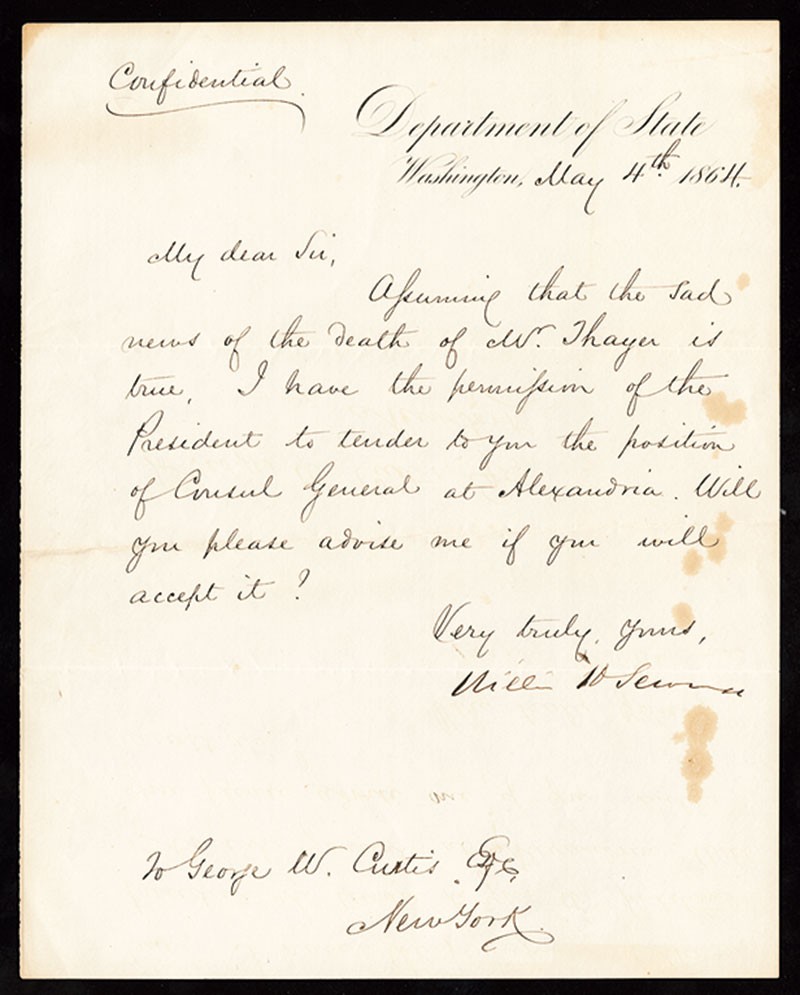 Confidential.
Department of State
Washington, May 4th 1864.
My dear Sir,
Assuming that the sad
news of the death of Mr. Thayer is
true, I have the permission of the
President to tender to you the position
of Consul General at Alexandria. Will
you please advise me if you will
accept it?
Very truly, yours,
William H Seward
To George W. Curtis, Esq.
New York.